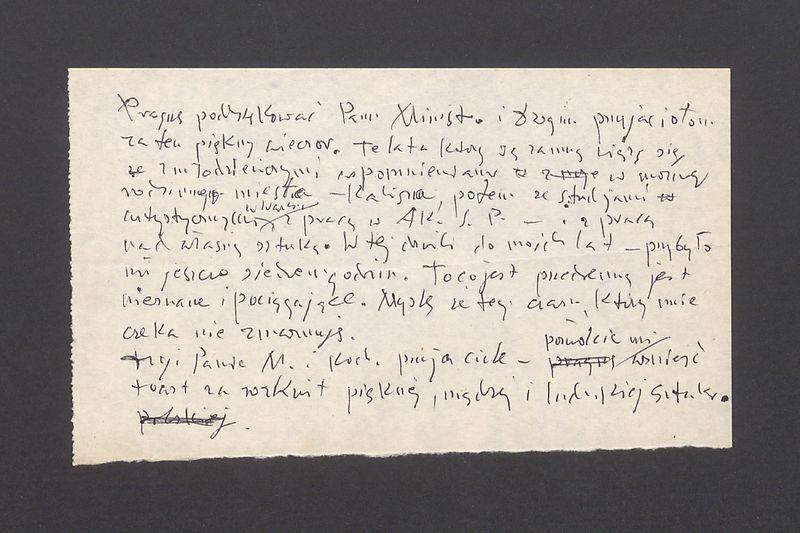 Pragnę podziękować Panu Ministr. i Drogim przyjaciołom
za ten piękny wieczór. Te lata które są za mną wiążą się
ze z młodzieńczymi wspomnieniami w moim
rodzinnym mieście – Kalisza, potem ze studjami w
artystycznymi, z pracą w AK. S. P. – i z pracą
nad własną sztuką. W tej chwili do moich lat – przybyło
mi jeszcze siedem godzin. To co jest przedemną jest
nieznane i pociągające. Myślę że tego czasu, który mnie
czeka nie zmarnuję.
pozwólcie mi
Panie M. i Koch. przyjaciele – pragnę wznieść
toast za rozkwit pięknej, mądrej i ludzkiej sztuki.
polskiej.